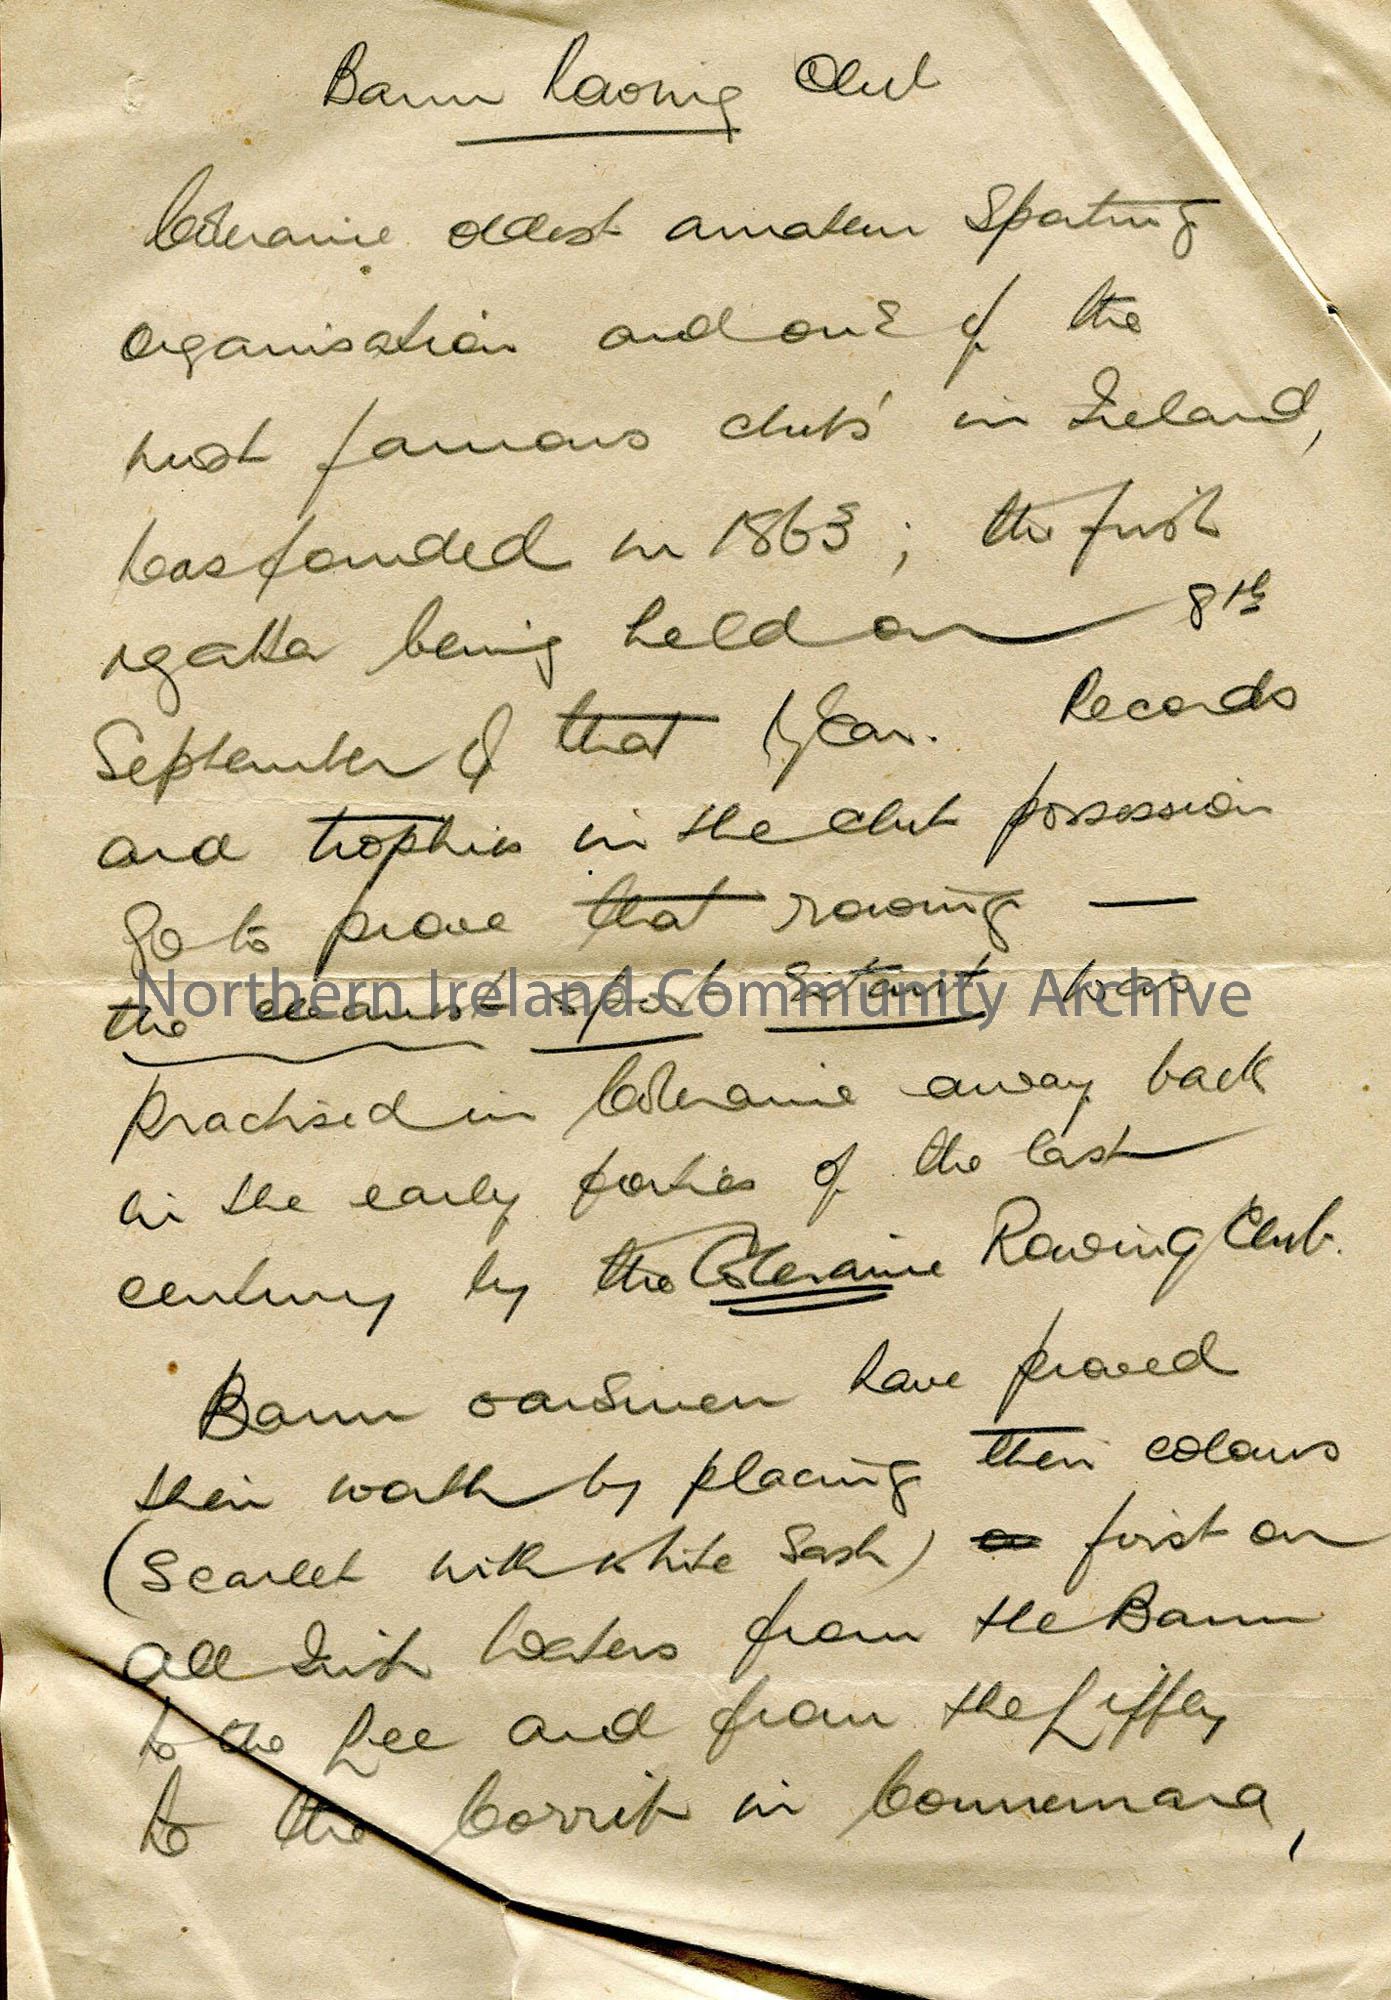 Bann Rowing Club
Coleraine oldest amateur Sporting
Organisation and one of the
most famous clubs' in Ireland,
was founded in 1863; the first
regatta being held on 8th
September of that year. Records
and trophies in the club possession
go to prove that rowing —
Northern Ireland Community Archive
the cleanest sport extant was
practised in Coleraine away back
in the early forties of the last
century by the Coleraine Rowing Club.
Bann oarsmen have proved
their worth by placing their colours
(Scarlet with white Sash) first on
all Irish Waters from the Bann
to the Lee and from the Liffey
to the Corrib in Connemara,